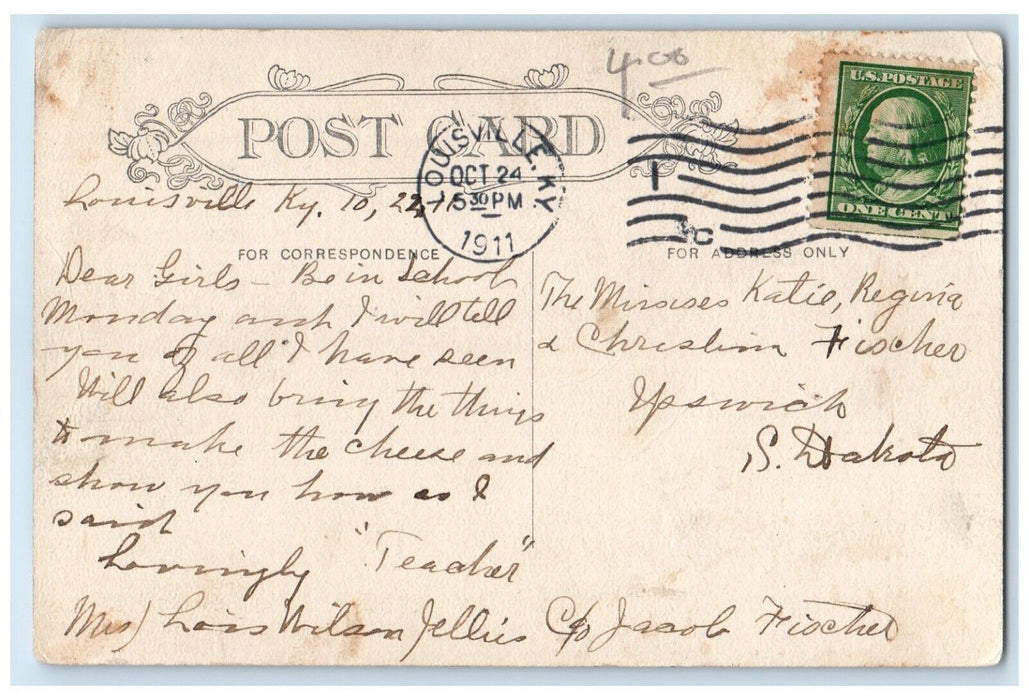 4.00
U.S. POSTAGE
ONE CENT
POST CARD
LOUISVILLE, KY.
OCT 24
530 PM
1911
1
C
Louisville Ky. 10, 22, 11
FOR CORRESPONDENCE
FOR ADDRESS ONLY
Dear Girls - Be in School
Monday and I will tell
you of all I have seen
Will also bring the things
to make the cheese and
show you how as I
said
Lovingly "Teacher"
(Mrs) Lois Wilson Jellies
The Misses Katie, Regina
& Christina Fischer
Ipswich
S. Dakota
C/o Jacob Fischer